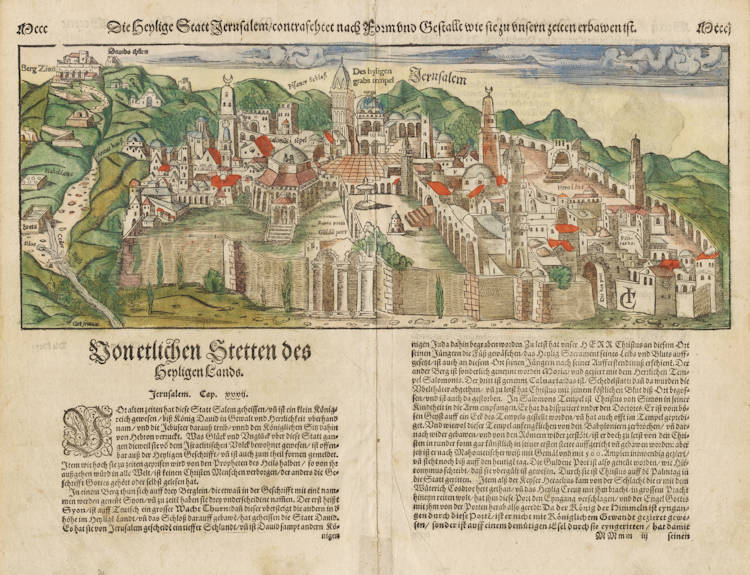 Mccc Die Heylige Statt Jerusalem/contrafehtet nach Form vnd Gestallt wie sie zu vnsern zeiten erbawen ist. Mcccj
Berg Zion
Pisaner Schloß
Des hyligen
grabs tempel
Jerusalem
Von etlichen Stetten des
Heyligen Lands.
Jerusalem. Cap. xvij.
VOr alten zeiten hat diese Statt Salem geheissen/vñ ist ein klein König
reich gewesen/biß König David in Gewalt vnd Herrlichkeit vberhand
nam/vnd die Jebusiter darauß treib/vnnd den Königlichen Sitz dahin
von Hebron verruckt. Was Glück vnd Vnglück vber diese Statt gan-
gen die weil sie von dem Israelitischen Volck bewohnt gewesen/ist offen-
bar auß der Heyligen Geschrifft/vñ ist auch zum theil fornen gemeldet.
Item wie hoch sie zu zeiten gewesen wirdt von den Propheten des Heils halben/so von jhr
außgehen würd in alle Welt/ist keinen Christen Menschen verborgen/der anders die Ge-
schrifft Gottes gehört oder selbst gelesen hat.
In einem Berg thun sich auff drey Berglein/die etwa in der Geschrifft mit eim na-
men werden genañt Syon/vñ zu zeiten haben sie drey vnderscheidene nam̃en. Der erst heißt
Syon/ist auff Teutsch ein grosser Wacht Thurn/daß dieser vbersteigt die andern in der
höhe im Heyligen Landt/vñ das Schloß darauff gebawt/hat geheissen die Statt David.
Es hat sie von Jerusalem gescheiden ein tieffer Schlundt/vñ ist David sampt andern Kö-
nigen
nigen Juda dahin begraben worden. Zu letst hat vnser HERR Christus an diesem Ort
seinen Jüngern die Füß gewäschen/das Heylig Sacrament seines Leibs vnd Bluts auff-
gesetzt/ist auch an diesem Ort seinen Jüngern nach seiner Aufferstendtnuß erschienen. Der
ander Berg ist sonderlich genennt worden Moria/vnd geziert mit dem Herrlichen Tem-
pel Salomonis. Der dritt ist genennt Calvariæ
das ist/Schedelstatt/daß da wurden die
Vbelthäter abgethan/vñ zu letst hat Christus mit seinem köstlichen Blut diß Ort begos-
sen/vnd ist auch da gestorben. In Salomons Tempel ist Christus von Simon in seiner
Kindtheit in die Arm empfangen. Er hat da disputiert vnder den Doctores. Er ist vom bö-
sen Geist auff ein Eck des Tempels gestellt worden/vñ hat auch offt im Tempel gepredi-
get. Vnd wiewol dieser Tempel anfengklichen von den Babyloniern zerbrochen/vñ dar-
nach wider gebawen/vnd von den Römern wider zerstört/ist er doch zu letst von den Chri-
sten in runder form gar fürstlich in seiner ersten stette auffgericht vñ gebawen worden: aber
jetz ist er nach Mahometischer weiß mit Gemäld vnd mit Amplen inwendig geziert/
vñ steht noch biß auff den heutigen tag. Die Guldene Port ist also genennt worden/wie Hie-
ronymus schreibt/daß sie vbergült ist gewesen. Durch sie ist Christus auff dẽ Palmtag in
die Statt geritten. Item als der Keyser Heraclius kam von der Schlacht die er mit dem
Wüterich Cosdroe hett gethan/vnd das Heylig Creutz mit jhm bracht/in grossem Pracht
hineyn reiten wolt/hat sich diese Port den Eingang verschlagen/vnd der Engel Gottes
mit jhm von der Porten herab also geredt: Da der König der Himmeln ist eyngan-
gen durch diese Port/ist er nicht mit Königlichem Gewandt gezieret gewe-
sen/sonder ist auff einem demütigen Esel durch sie eyngeritten/hat damit
MMmm iij seinen